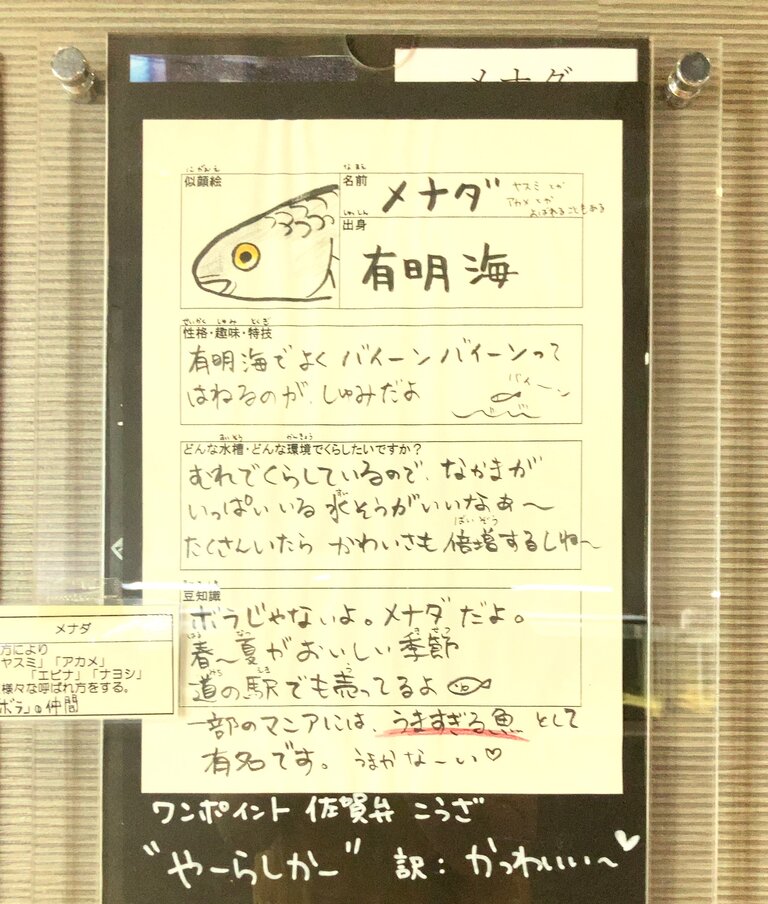 メナダ
にがおえ
似顔絵
なまえ
名前
メナダ
ヤスミ とか
アカメ とか
よばれることもある
しゅっしん
出身
有明海
せいかく しゅみ とくぎ
性格・趣味・特技
有明海でよく バイーンバイーンって
はねるのが、しゅみだよ
バイーン
すいそう かんきょう
どんな水槽・どんな環境でくらしたいですか?
むれでくらしているので、なかまが
いっぱいいる 水そうがいいなぁ〜
すい
ばいぞう
たくさんいたら かわいさも 倍増するしね〜
豆知識
ボラじゃないよ。メナダだよ。
はる なつ きせつ
春〜夏がおいしい季節
みち えき う
道の駅でも売ってるよ
一部のマニアには、うますぎる魚 として
有名です。 うまかな〜い♡
メナダ
方により
ヤスミ」「アカメ」
「エビナ」「ナヨシ」
様々な呼ばれ方をする。
ボラ」の仲間
ワンポイント 佐賀弁 こうざ
"やーらしかー" 訳: かっわいい〜♥